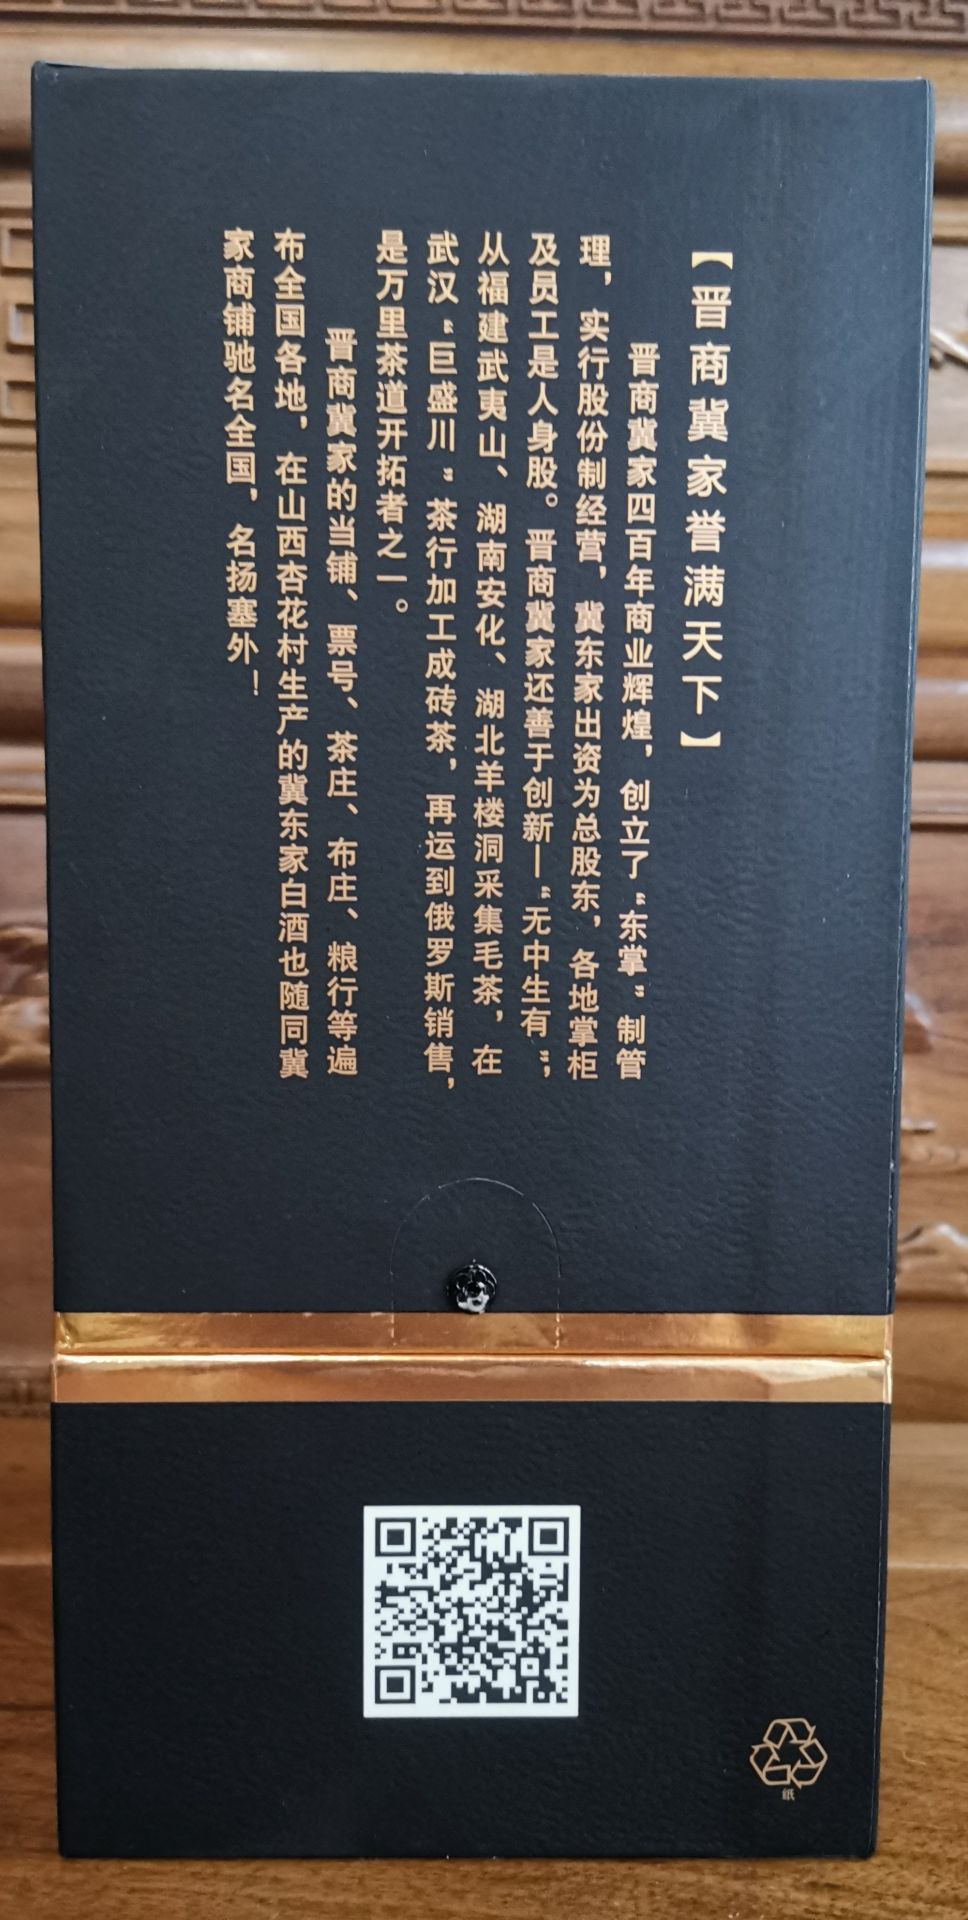 【晋商冀家誉满天下】
晋商冀家四百年商业辉煌，创立了“东掌”制管
理，实行股份制经营，冀东家出资为总股东，各地掌柜
及员工是人身股。晋商冀家还善于创新—“无中生有”，
从福建武夷山、湖南安化、湖北羊楼洞采集毛茶，在
武汉“巨盛川”茶行加工成砖茶，再运到俄罗斯销售，
是万里茶道开拓者之一。
晋商冀家的当铺、票号、茶庄、布庄、粮行等遍
布全国各地，在山西杏花村生产的冀东家白酒也随同冀
家商铺驰名全国，名扬塞外！
纸